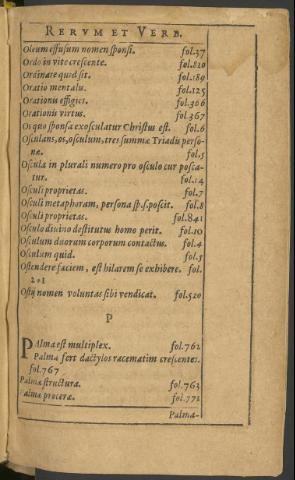 RERVM ET VERB.
Oleum effusum nomen sponsi. fol.37
Ordo in vite crescente. fol.820
Ordinare quid sit. fol.189
Oratio mentalu. fol.125
Orationis effigies. fol.306
Orationis virtus. fol.367
Os quo sponsa exosculatur Christus est. fol.6
Osculans, os, osculum, tres summæ Triadis perso-
næ. fol.5
Oscula in plurali numero pro osculo cur posca-
tur. fol.14
Osculi proprietas. fol.7
Osculi metaphoram, persona sp. s. poscit. fol.8
Osculi proprietas. fol.841
Osculo divino destitutus homo perit. fol.10
Osculum duorum corporum contactus. fol.4
Osculum quid. fol.5
Ostendere faciem, est hilarem se exhibere. fol.
201
Ostij nomen voluntas sibi vendicat. fol.520
P
PAlma est multiplex. fol.762
Palma fert dactylos racematim crescentes.
fol.767
Palmæ structura. fol.763
alma proceræ. fol.771
Palma-